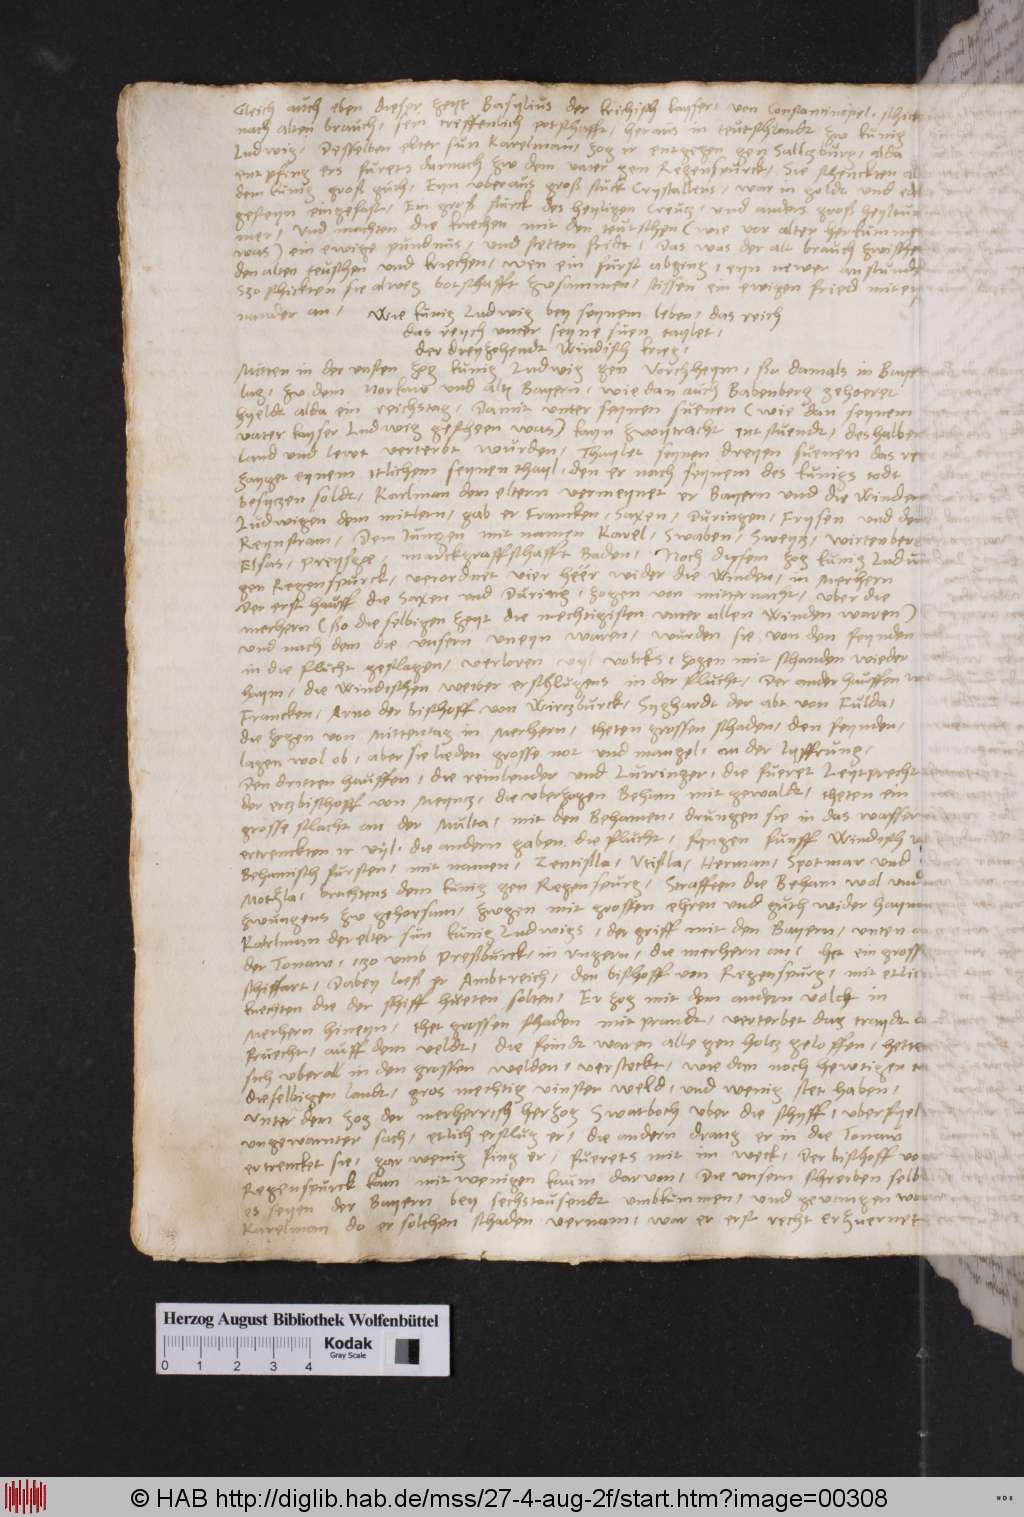 Gleich auch eben dieser zeyt Basylius der krichisch kayser, von Constantinopel, schick
nach alten brauch, sein treffenlich potschafft, heraus in teutschlandt zw kunig
Ludwig, Desselben elter sun Karelman, zog ir entgegen gen Saltzburg, alda
entpfing ers furets darnach zw dem vater gen Regenspurck, Sie schenckten al
dem kunig groß guth, Eyn uberaus groß stuck Crystallens, war in goldt und ed
gesteyn eingefast, Ein groß stuck des heyligen Creutz, und anders groß heyltum
mer, Und machten die kriechen mit den teutschen (wie vor alter herkumme
was) ein ewige pundnus, und stetten fridt, Das was der alt brauch zwische
den alten teuschen und kriechen, wen ein furst abgeng, eyn newer anstundt
Szo schickten sie alweg botschafft zwsammen, stissen ein ewigen fried mit ey
nander an,
Wie kunig Ludwig bey seynem leben, das reich
das reych unter seyne suen taylet,
der dreyzehendt Windisch krieg,
Mitten in der unsten zog kunig Ludwig gen Vorchheym, szo damals in Baye
lag, zw dem Norkaw und alty Bayern, wie dan auch Babenberg gehoeret
hyeldt alda ein reichstag, Damit unter seynen suenen (wie dan seynem
vater kayser Ludwig gescheen was) kayn zwytracht entstuendt, deshalben
land und lewt verterbt wurden, Thaylet seynen dreyen suenen das re
zayget eynem itlichem seynen thayl, den er nach seynem des kunigs todt
besytzen soldt, Karlman dem eltern vermeynet er Bayern und die Winden
Ludwigen dem mitlern, gab er Francken, Saxen, Duringen, Frysen und den
Reynstram, Dem Jungen mit namen Karel, Swaben, Sweytz, wirtenberg
Elsas, Preysgæ, marckgraffschafft Baden, Noch dyesem zog kunig Ludw
gen Regenspurck, verordnet vier heer wider die Winden, in Merhern
Der erst hauff die Saxen und During, zogen von mitternacht, uber die
merhern (szo die selbigen zeyt die mechtigisten unter allen Winden waren)
und nach dem die unsern uneyn waren, wurden sie von den feynden
in die flucht geslagen, verloren vyl volcks, zogen mit schanden wieder
haym, die Windischen weiber erschlugens in der flucht, Der ander hauffen
Francken, Arno der bischoff von Wirtzburck, Syghardt der abt von Fulda,
die zogen von Mittentag in Merhern, theten grossen schaden, den feynden,
lagen wol ob, aber sie lieden grosse not und mangel, an der lyffrung,
Den dritten hauffen, die reinlender und Lutringer, die fueret Leytprecht
der ertzbischoff von Meyntz, die uberzogen Beham mit gewaldt, theten ein
grosse slacht an der Multa, mit den Behamen, drungen sie in das wasser
ertrenckten ir vyl, die andern gaben die flucht, fyngen funff Windisch
Behamisch fursten, mit namen, Zentisla, Vtisla, Herman, Spotmar und
Mothzla, brachtens dem kunig gen Regenspurg, Strafften die Beham wol und
zwungens zw gehorsam, zwgen mit grossen ehren und guth wider haym
Karelman der elter sun kunig Ludwigs, der griff mit den Bayern, unten
der Tonaw, izo umb Preßburck, in Ungern, die merhern an, het ein gross
schiffart, Dabey ließ er Ambtreich, den bischoff von Regenspurg, mit etlic
knechten die der schiff hueten solten, Er zog mit dem andern volck in
Merhern hineyn, thet grossen schaden mit prandt, verterbet das traydt
fruecht, auff dem veldt, die feindt waren alle gen holtz geloffen, hette
sich uberall in den grossen welden, versteckt, wie dan noch hewtigen
dieselbigen landt, gros mechtig vinster weld, und wenig stet haben,
Unter dem zog der merherrisch herzog Swatboch uber die schyff, uberfyel
ungewarnter sach, etlich erslug er, die andern drang er in die Tonaw
ertrencket sie, gar wenig fing er, fuerets mit im weck, Der bischoff vo
Regenspurck kam mit wenigen kaum darvon, Die unsern schreiben selb
es seyen der Bayern bey sechstausendt umbkummen, und gevangen wor
Karelman do er solchen schaden vernam, war er erst recht erzuernet
Herzog August Bibliothek Wolfenbüttel
Kodak
Gray Scale
0 1 2 3 4
© HAB http://diglib.hab.de/mss/27-4-aug-2f/start.htm?image=00308